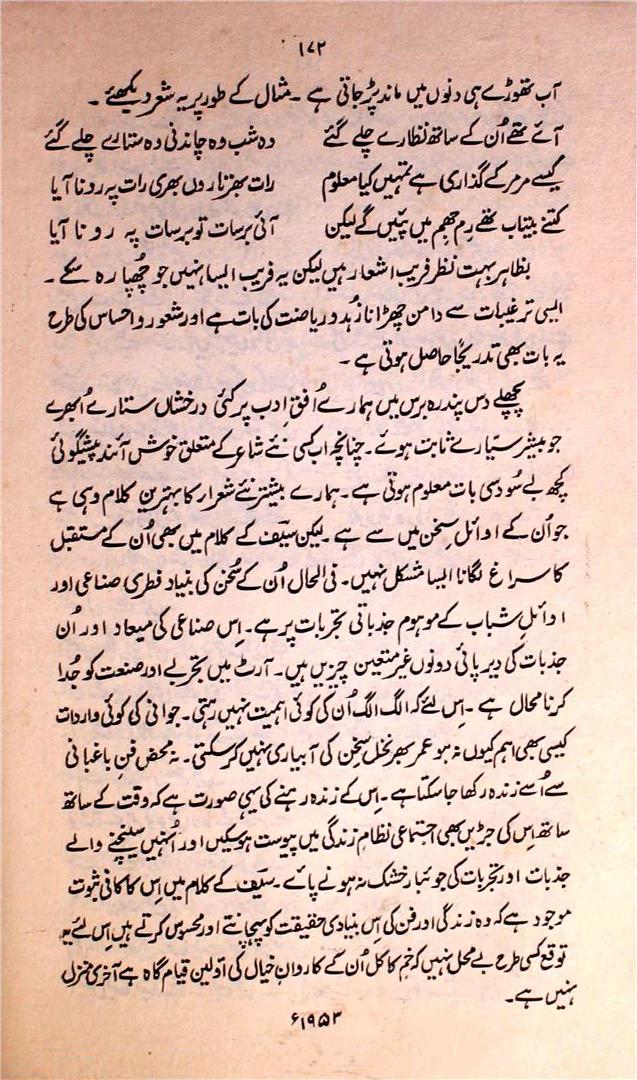 ۱۷۲
آب تھوڑے ہی دنوں میں ماند پڑ جاتی ہے ۔ مثال کے طور پر یہ شعر دیکھئے ۔
آئے تھے اُن کے ساتھ نظارے چلے گئے وہ شب وہ چاندنی وہ ستارے چلے گئے
کیسے مر مر کے گذاری ہے تمہیں کیا معلوم رات بھر تاروں بھری رات پہ رونا آیا
کتنے بیتاب تھے رم جھم میں پئیں گے لیکن آئی برسات تو برسات پہ رونا آیا
بظاہر بہت نظر فریب اشعار ہیں لیکن یہ فریب ایسا نہیں جو چُھپا رہ سکے ۔
ایسی ترغیبات سے دامن چھڑانا زُہد و ریاضت کی بات ہے اور شعور و احساس کی طرح
یہ بات بھی تدریجاً حاصل ہوتی ہے ۔
پچھلے دس پندرہ برس میں ہمارے اُفقِ ادب پر کئی درخشاں ستارے اُبھرے
جو بیشتر سیّارے ثابت ہوئے ۔ چنانچہ اب کسی نئے شاعر کے متعلق خوش آئند پیشگوئی
کچھ بے سُود سی بات معلوم ہوتی ہے ۔ ہمارے بیشتر نئے شعراء کا بہترین کلام وہی ہے
جو اُن کے اوائلِ سخن میں سے ہے ۔ لیکن سیّف کے کلام میں بھی اُن کے مستقبل
کا سراغ لگانا ایسا مشکل نہیں ۔ فی الحال اُن کے سُخن کی بنیاد فطری صناعی اور
اوائلِ شباب کے موہوم جذباتی تجربات پر ہے ۔ اِس صناعی کی میعاد اور اُن
جذبات کی دیرپائی دونوں غیر متعین چیزیں ہیں ۔ آرٹ میں تجربے اور صنعت کو جُدا
کرنا محال ہے ۔ اِس لئے کہ الگ الگ اُن کی کوئی اہمیت نہیں رہتی ۔ جوانی کی کوئی واردات
کیسی بھی اہم کیوں نہ ہو عمر بھر نخلِ سخن کی آبیاری نہیں کر سکتی ۔ نہ محض فنِ باغبانی
سے اُسے زندہ رکھا جا سکتا ہے ۔ اِس کے زندہ رہنے کی یہی صورت ہے کہ وقت کے ساتھ
ساتھ اِس کی جڑیں بھی اجتماعی نظامِ زندگی میں پیوست ہو سکیں اور اُنہیں سینچنے والے
جذبات اور تجربات کی جوئبار خشک نہ ہونے پائے ۔ سیّف کے کلام میں اِس کا کافی ثبوت
موجود ہے کہ وہ زندگی اور فن کی اِس بنیادی حقیقت کو پہچانتے اور محسوس کرتے ہیں اِس لئے یہ
توقع کسی طرح بے محل نہیں کہ خمِ کاکل اُن کے کاروانِ خیال کی اوّلین قیام گاہ ہے آخری منزل
نہیں ہے ۔
۱۹۵۳ء